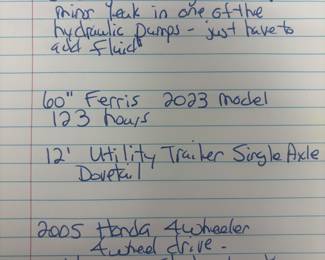 minor leak in one of the
hydraulic pumps - just have to
add fluid
60" Ferris 2023 model
123 hours
12' Utility Trailer Single Axle
Dovetail
2005 Honda 4wheeler
4wheel drive -